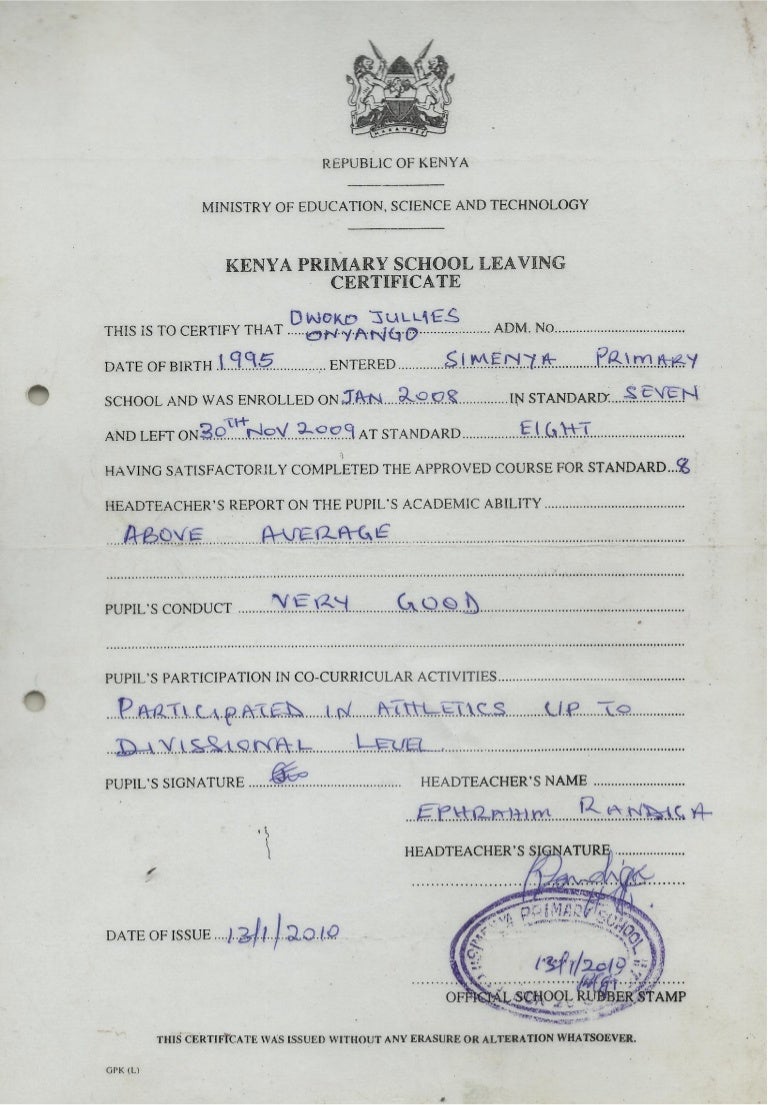 HARAMBEE
REPUBLIC OF KENYA
MINISTRY OF EDUCATION, SCIENCE AND TECHNOLOGY
KENYA PRIMARY SCHOOL LEAVING
CERTIFICATE
THIS IS TO CERTIFY THAT OWOKO JULLIES ONYANGO ADM. No.
DATE OF BIRTH 1995 ENTERED SIMENYA PRIMARY
SCHOOL AND WAS ENROLLED ON JAN 2008 IN STANDARD SEVEN
AND LEFT ON 30TH NOV 2009 AT STANDARD EIGHT
HAVING SATISFACTORILY COMPLETED THE APPROVED COURSE FOR STANDARD 8
HEADTEACHER'S REPORT ON THE PUPIL'S ACADEMIC ABILITY
ABOVE AVERAGE
PUPIL'S CONDUCT VERY GOOD
PUPIL'S PARTICIPATION IN CO-CURRICULAR ACTIVITIES
PARTICIPATED IN ATHLETICS UP TO
DIVISSIONAL LEVEL
PUPIL'S SIGNATURE HEADTEACHER'S NAME
EPHRAHIM RANDIGA
HEADTEACHER'S SIGNATURE
Randiga
DATE OF ISSUE 13/1/2010
SIMENYA PRIMARY SCHOOL
13/1/2010
OFFICIAL SCHOOL RUBBER STAMP
THIS CERTIFICATE WAS ISSUED WITHOUT ANY ERASURE OR ALTERATION WHATSOEVER.
GPK (L)